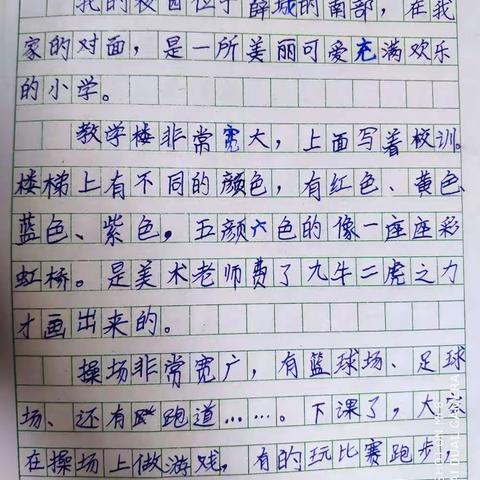 我的校园位于薛城的南部，在我
家的对面，是一所美丽可爱充满欢乐
的小学。
教学楼非常宽大，上面写着校训。
楼梯上有不同的颜色，有红色、黄色、
蓝色、紫色，五颜六色的像一座座彩
虹桥。是美术老师费了九牛二虎之力
才画出来的。
操场非常宽广，有篮球场、足球
场、还有跑道……。下课了，大家
在操场上做游戏，有的玩比赛跑步，
DUAL CAMERA